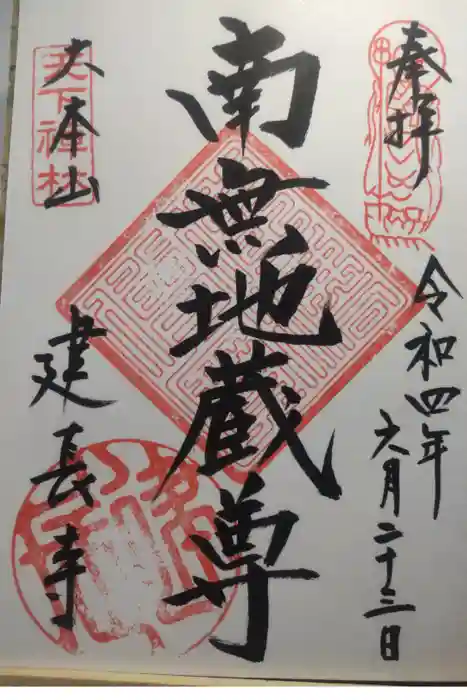 奉拝
令和四年
六月二十三日
南無地蔵尊
大本山
天下禅林
建長寺